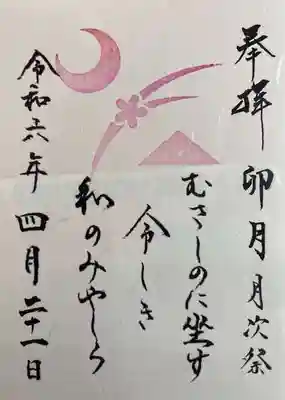 奉拝 卯月 月次祭
むさしのに坐す
令しき
和のみやしろ
令和六年 四月二十一日